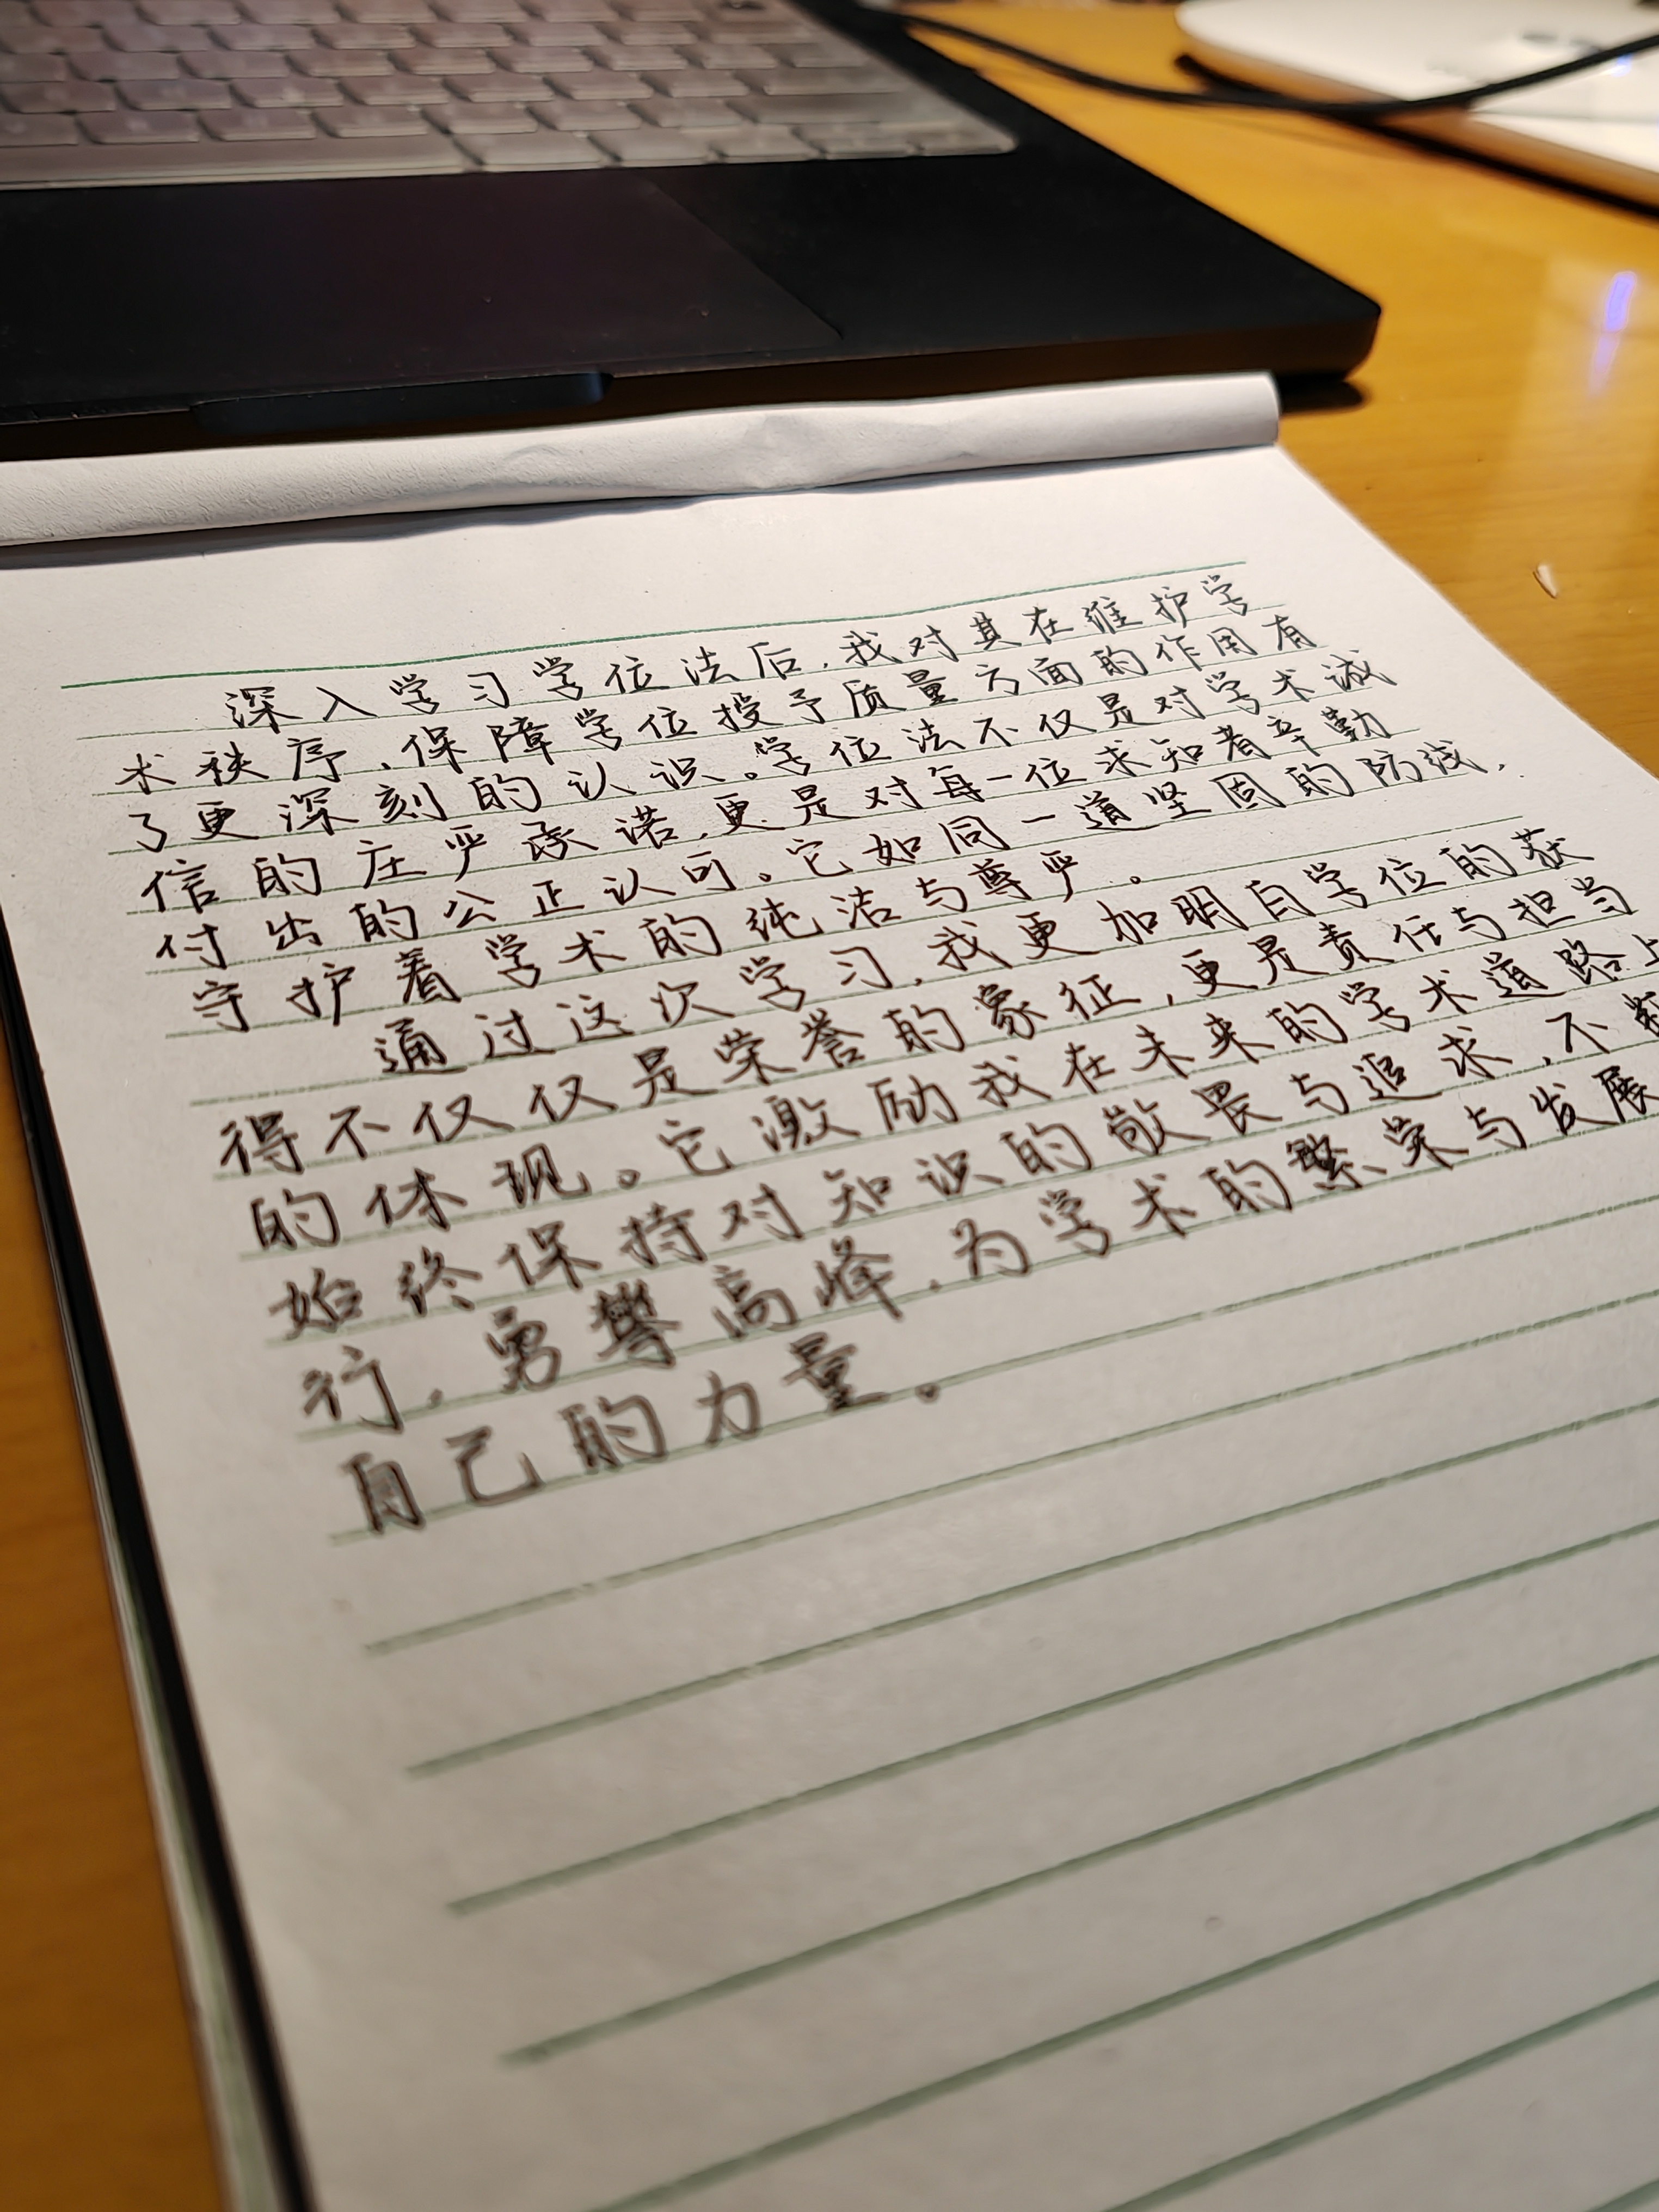 深入学习学位法后，我对其在维护学
术秩序、保障学位授予质量方面的作用有
了更深刻的认识。学位法不仅是对学术诚
信的庄严承诺，更是对每一位求知者辛勤
付出的公正认可。它如同一道坚固的防线，
守护着学术的纯洁与尊严。
通过这次学习，我更加明白学位的获
得不仅仅是荣誉的象征，更是责任与担当
的体现。它激励我在未来的学术道路上
始终保持对知识的敬畏与追求，不
行，勇攀高峰，为学术的繁荣与发展
自己的力量。